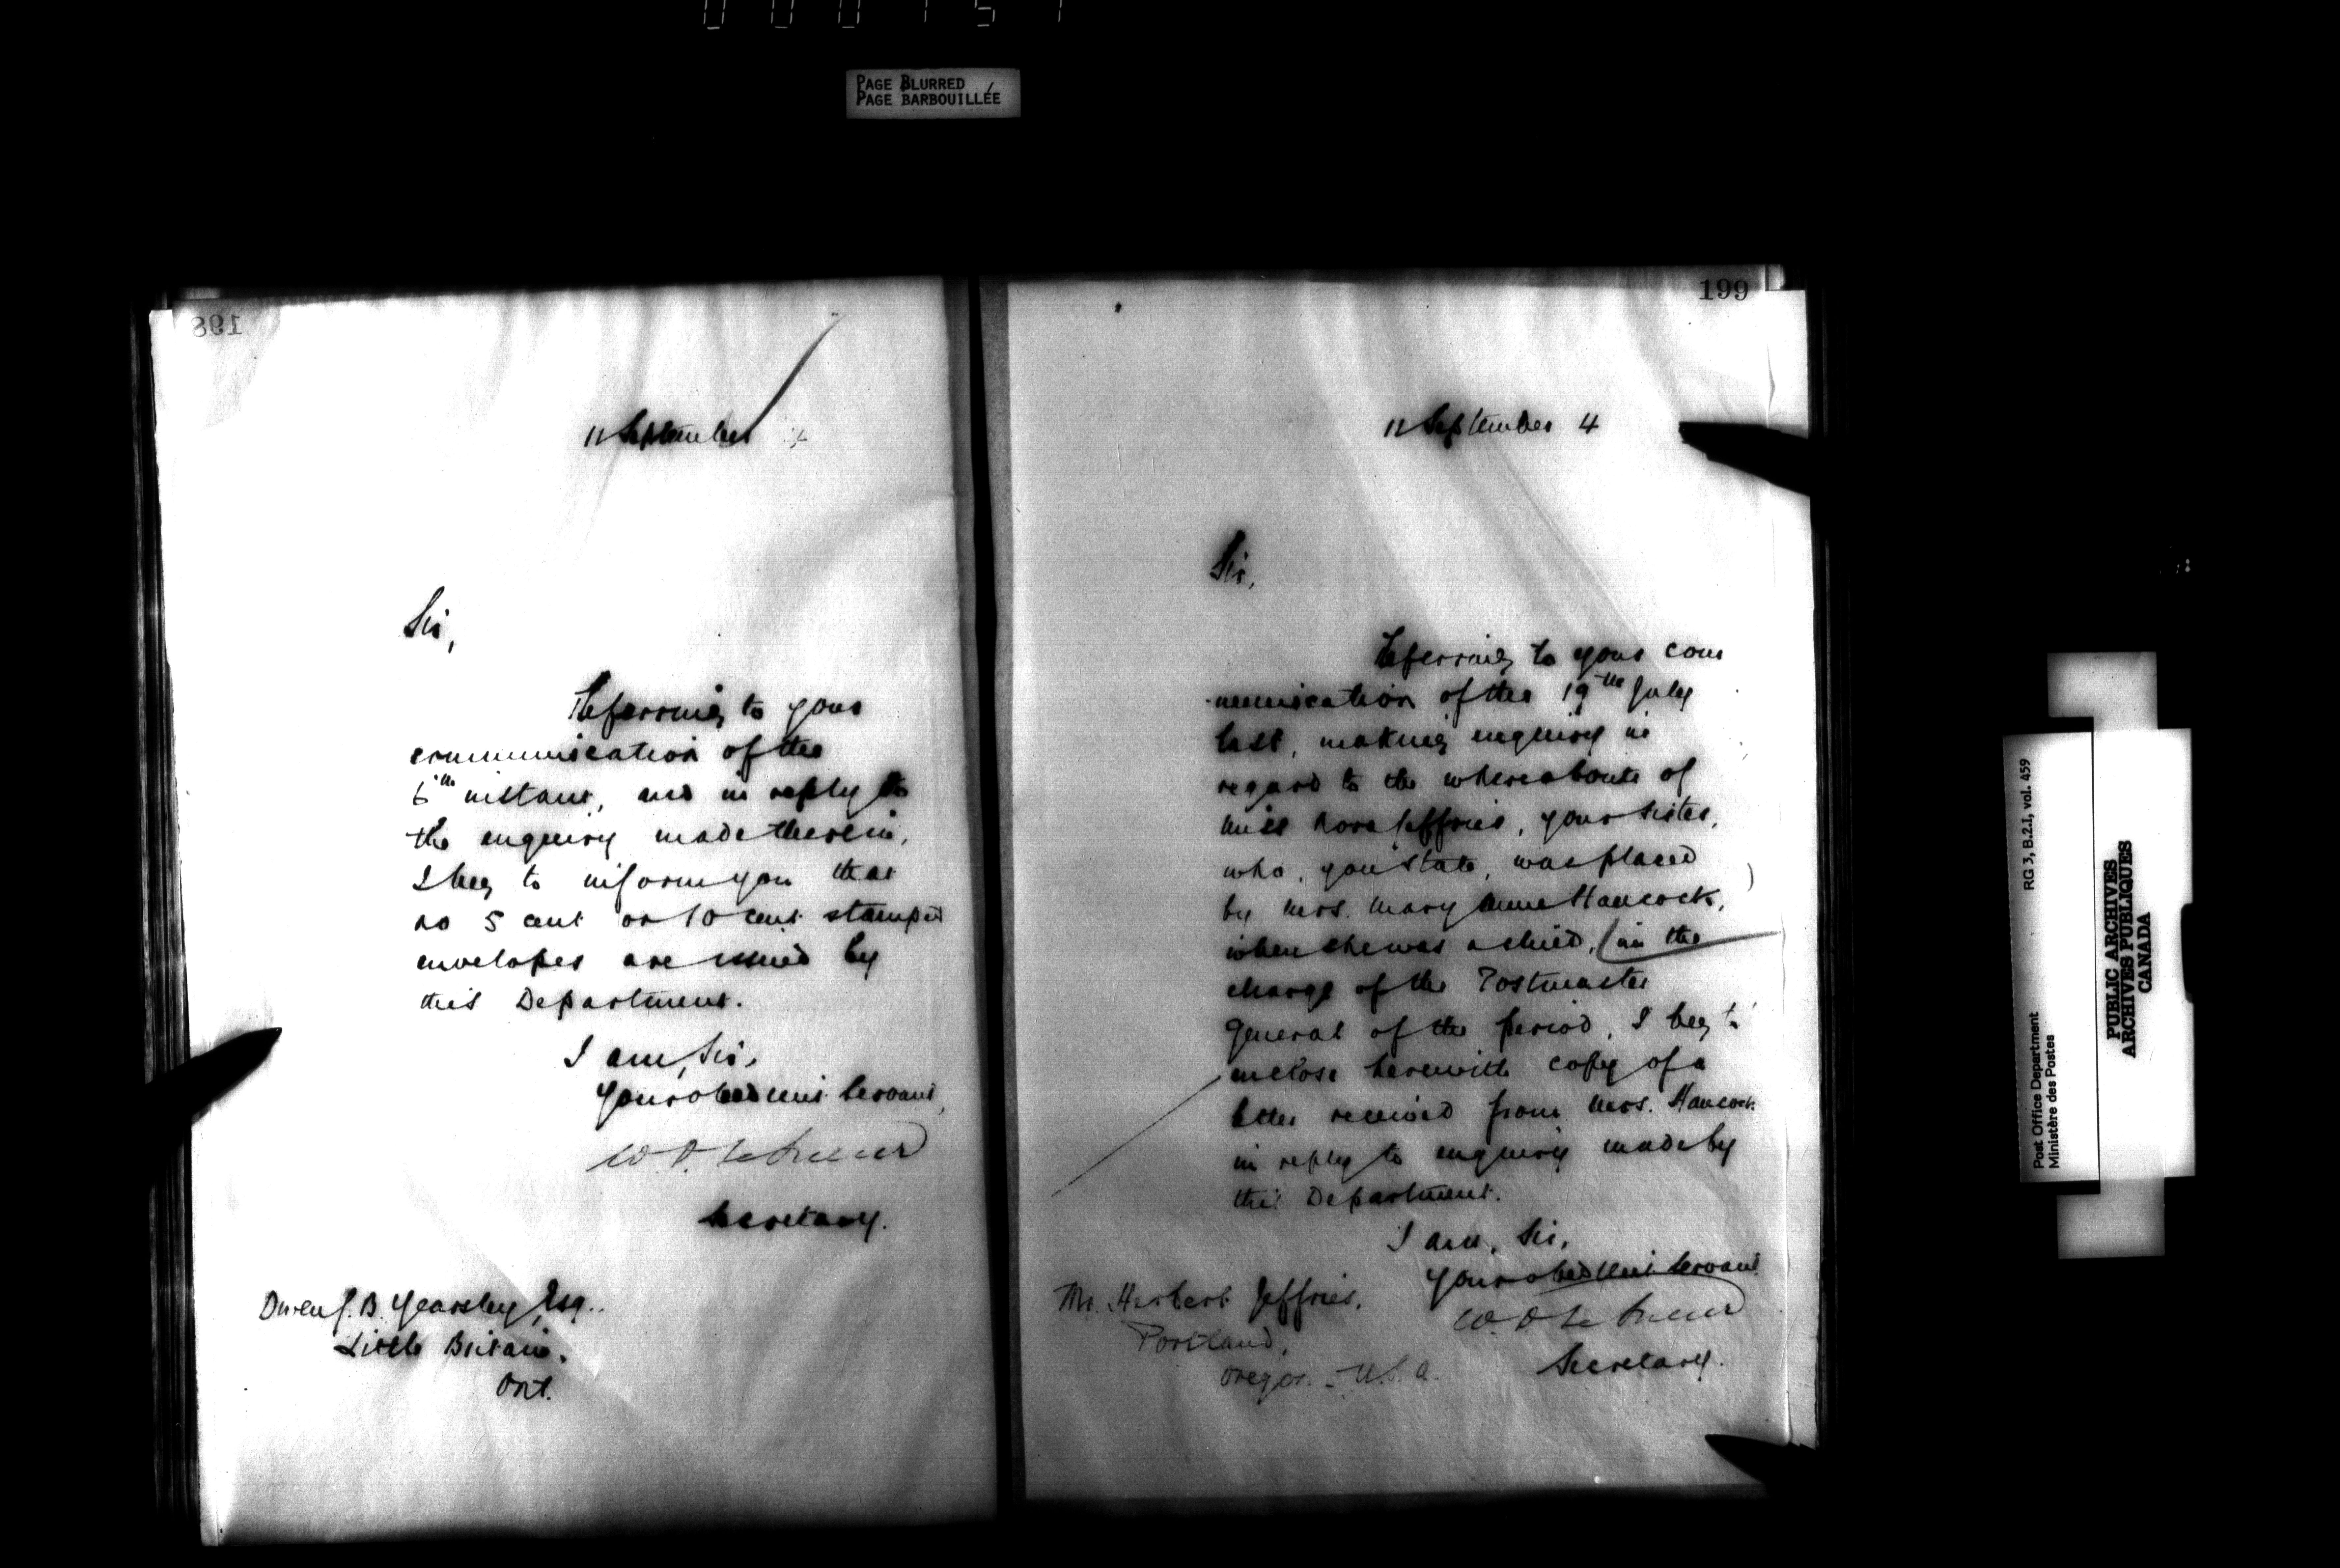 PAGE BLURRED
PAGE BARBOUILLÉE
198
11 September 4
Sir,
Referring to your
communication of the
6th instant, and in reply to
the enquiry made therein,
I beg to inform you that
no 5 cent or 10 cent stamped
envelopes are issued by
this Department.
I am, Sir,
Your obedient Servant,
W. D. LeSueur
Secretary.
J. B. Yearsley, Esq.
Little Britain.
Ont.
199
11 September 4
Sir,
Referring to your com
munication of the 19th July
last, making enquiry in
regard to the whereabouts of
Miss Jeffries, your sister,
who, you state, was placed
by Mrs. Mary Anne Hancock,
when she was a child, (in the
charge of the Postmaster
General of the period, I beg to
enclose herewith copy of a
letter received from Mrs. Hancock
in reply to enquiry made by
this Department.
I am, Sir,
Your obedient Servant
W. D. LeSueur
Secretary.
Mr. Herbert Jeffries,
Portland,
Oregon. - U.S.A.
Post Office Department
Ministère des Postes
RG 3, B.2.I, vol. 459
PUBLIC ARCHIVES
ARCHIVES PUBLIQUES
CANADA